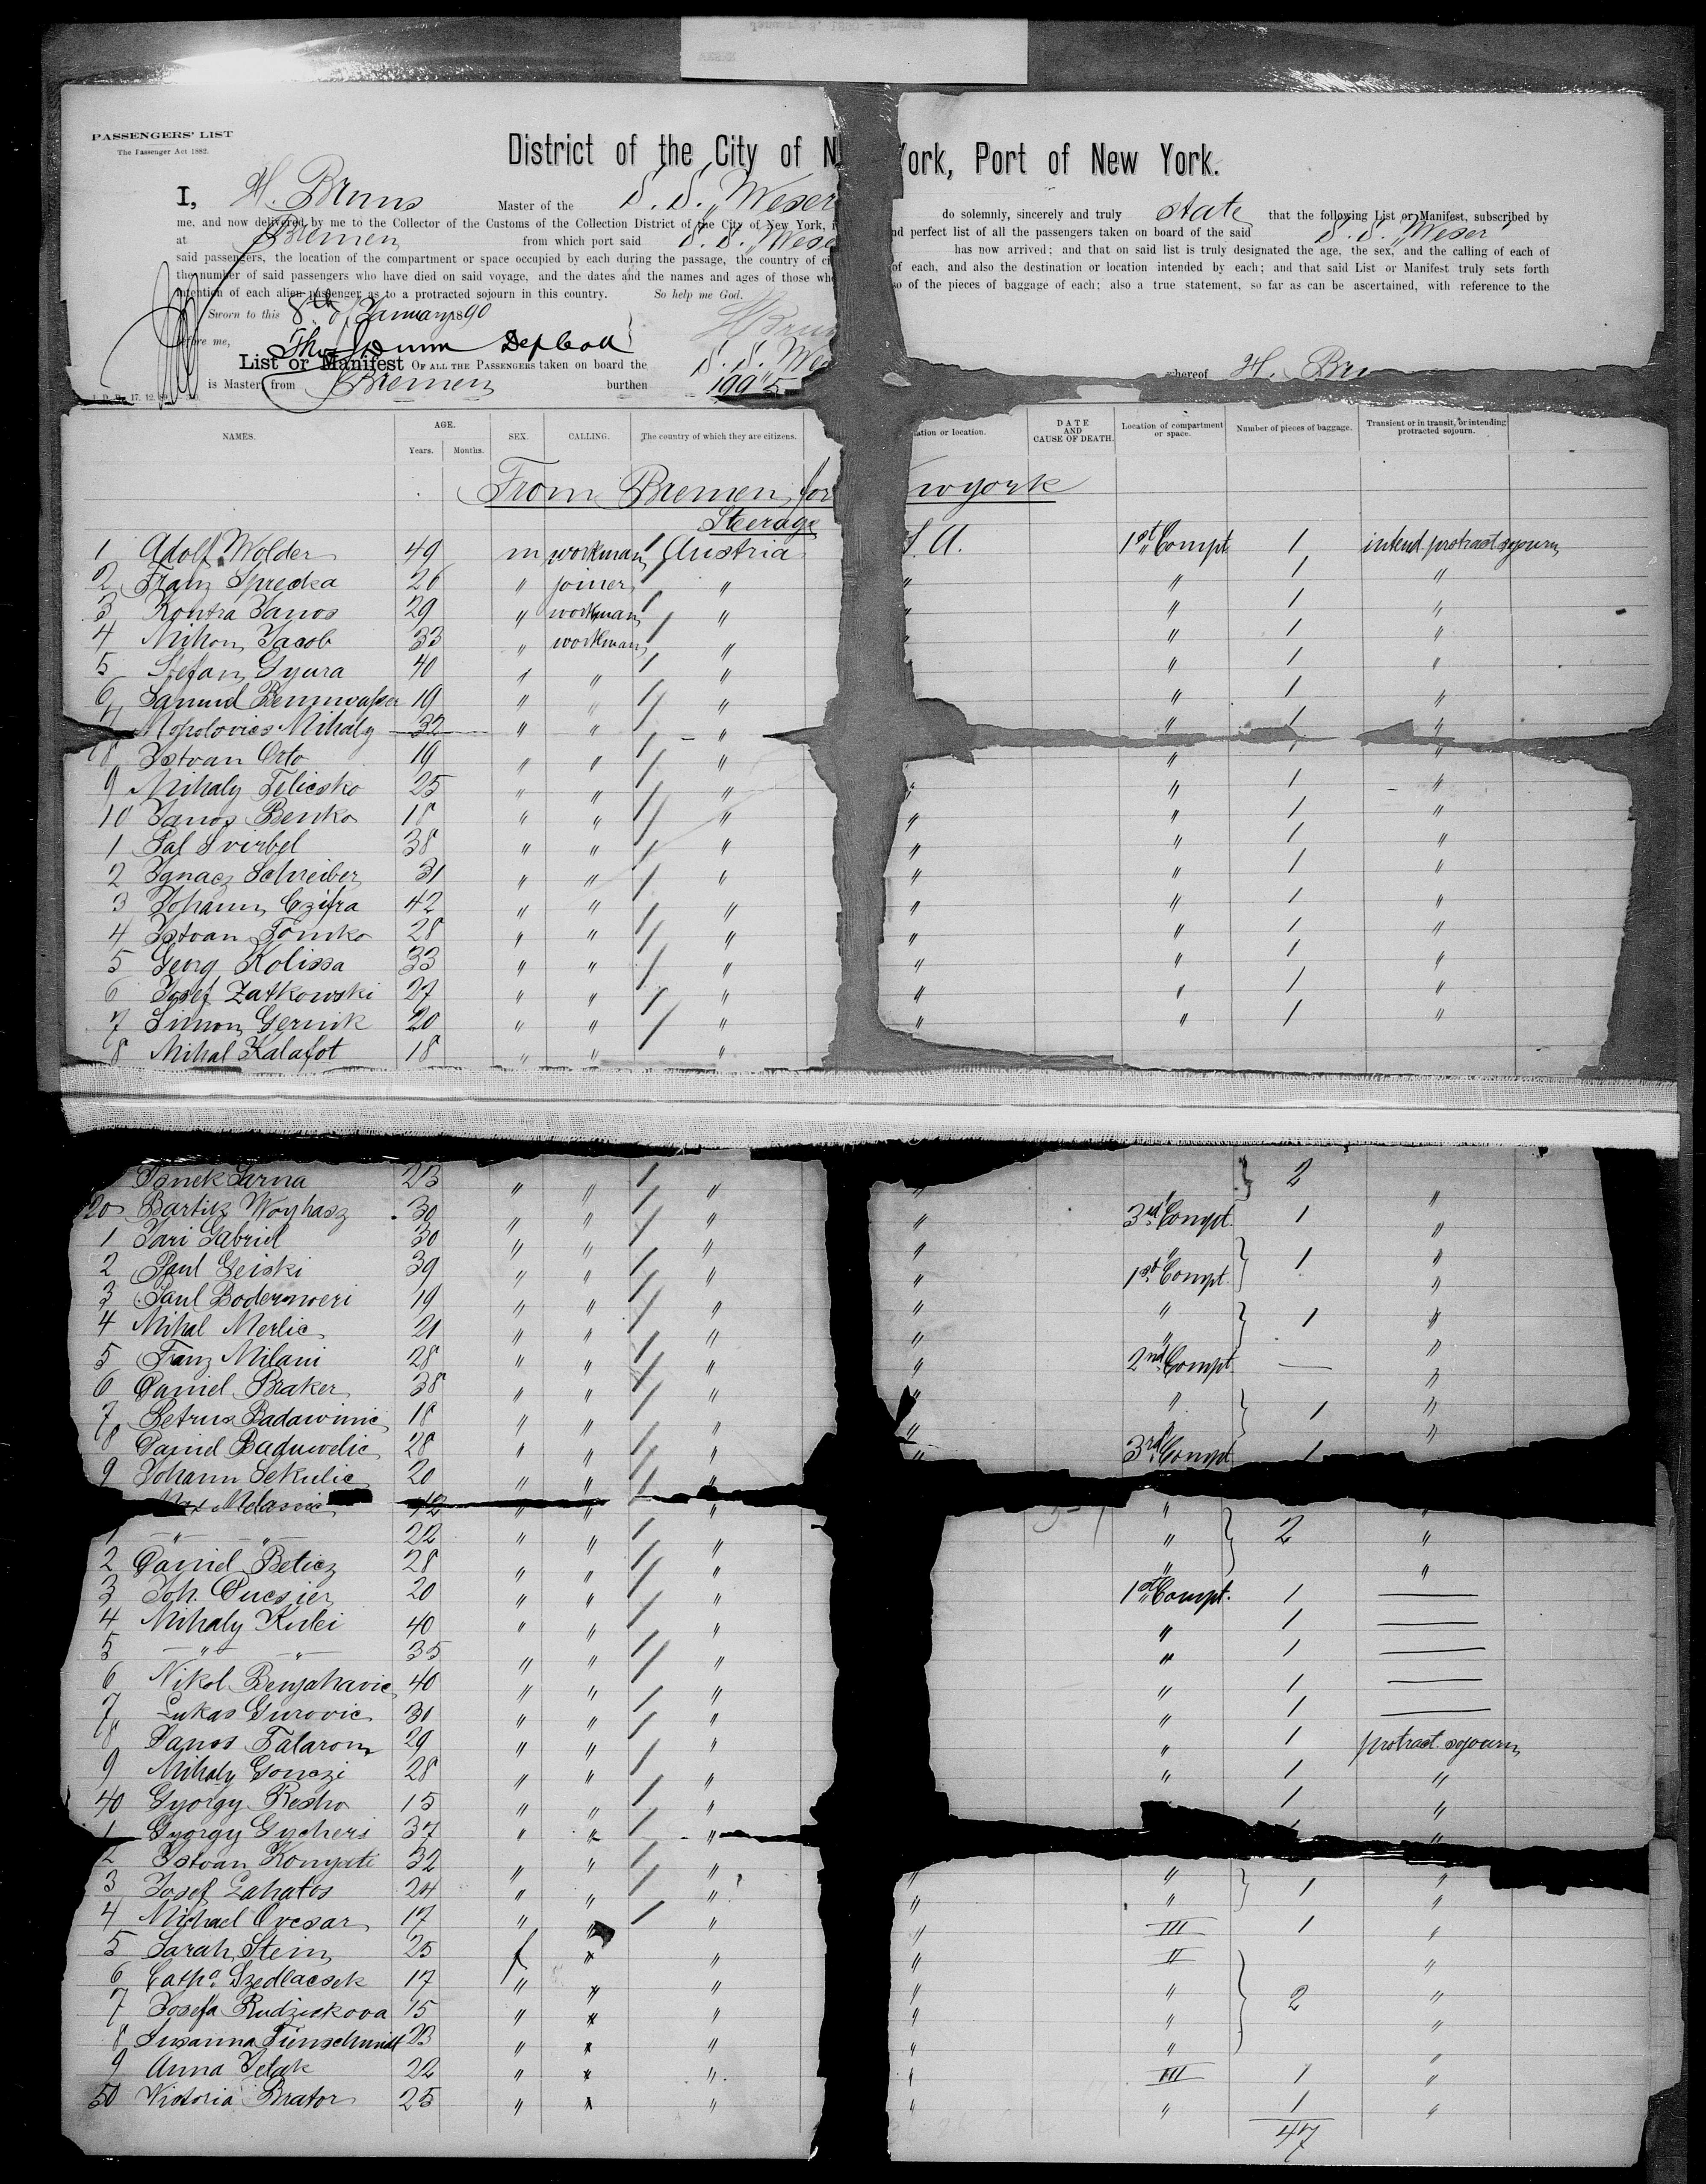 PASSENGERS' LIST
The Passenger Act 1882.
District of the City of N York, Port of New York.
I, H. Bruns Master of the S. S. „Weser do solemnly, sincerely and truly state that the following List or Manifest, subscribed by
me, and now delivered by me to the Collector of the Customs of the Collection District of the City of New York, nd perfect list of all the passengers taken on board of the said S. S. „Weser"
at Bremen from which port said S. S. „Wese has now arrived; and that on said list is truly designated the age, the sex, and the calling of each of
said passengers, the location of the compartment or space occupied by each during the passage, the country of ci of each, and also the destination or location intended by each; and that said List or Manifest truly sets forth
the number of said passengers who have died on said voyage, and the dates and the names and ages of those who so of the pieces of baggage of each; also a true statement, so far as can be ascertained, with reference to the
intention of each alien passenger as to a protracted sojourn in this country. So help me God.
Sworn to this 8th January 1890 H Brun
before me,
List or Manifest OF ALL THE PASSENGERS taken on board the S. S. We whereof H. Bru
is Master, from Bremen burthen 1995
NAMES. AGE. Years. Months. SEX. CALLING. The country of which they are citizens. ation or location. DATE AND CAUSE OF DEATH. Location of compartment or space. Number of pieces of baggage. Transient or in transit, or intending protracted sojourn.
From Bremen for wyork
Steerage
1 Adolf Wolder 49 m workman Austria S. A. 1st Compt 1 intend protract sojourn
2 Franz Sprecka 26 " joiner " " " 1 "
3 Kontra Janos 29 " workman " " " 1 "
4 Mihon Jacob 33 " workman " " " 1 "
5 Stefan Gyura 40 " " " " 1 "
6 Samuel 19 " " " " 1 "
7 Mihaly 32 " " " " 1 "
8 Istvan Orto 19 " " " " "
9 Mihaly Felicsko 25 " " " " " 1 "
10 Janos Benko 18 " " " " " 1 "
1 Pal Svirbel 38 " " " " " 1 "
2 Ignacz Schreiber 31 " " " " " 1 "
3 Johann Czifra 42 " " " " " 1 "
4 Istvan Tomko 28 " " " " " 1 "
5 Georg Kolissa 33 " " " " " 1 "
6 Josef Zatkowski 27 " " " " " 1 "
7 Simon Gernik 20 " " " " " 1 "
8 Mihal Kalafot 18 " " "
Sarna 23 " " " " 2
20 Bartik Woyhasz 30 " " " " 3rd Compt. 1 "
1 Jari Gabriel 30 " " " " " "
2 Paul Geiski 39 " " " " 1st Compt. 1 "
3 Paul 19 " " " " " "
4 Mihal Merlic 21 " " " " " 1 "
5 Franz Milani 28 " " " " 2nd Compt — "
6 Daniel Braker 38 " " " " " "
7 Petrus Badawinic 18 " " " " 1 "
8 Daniel Baduwelic 28 " " " " 3rd Compt 1
9 Johann Sekulic 20 " " "
Melassic 42 " " " " "
1 —"— —"— 22 " " " " 2 "
2 Daniel Beticz 28 " " " " "
3 Joh. 20 " " " 1st Compt. 1 —
4 Mihaly Kulei 40 " " " " 1 —
5 —"— —"— 35 " " " " 1 —
6 Nikol 40 " " " " 1 —
7 Lukas Gurovic 30 " " " " 1 —
8 Janos Tatarom 29 " " " " 1 protract. sojourn
9 Mihaly Gonczi 28 " " " " 1 "
40 Gyorgy Resho 15 " " " 1 "
1 Gyorgy 37 " " " "
2 Istvan Konyati 32 " " " " " "
3 Josef Lakatos 24 " " " " " 1 "
4 Michael Ovcsar 17 " " " " III 1 "
5 Sarah Stein 25 f " " " II "
6 Catha Szedlacsek 17 " " " " " "
7 Josefa Rudziskova 15 " " " " " 2 "
8 Susanna 23 " " " " " "
9 Anna Jelak 22 " " " " III 1 "
50 Victoria Brator 25 " " " " " 1 "
47